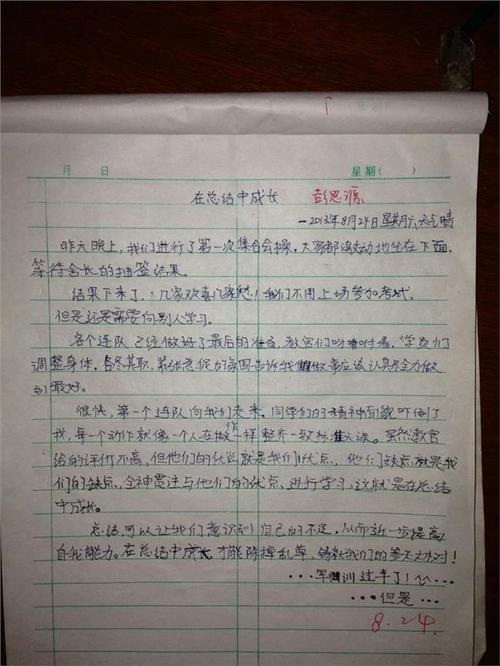 月 日 星期( )
在总结中成长 彭思源
—2013年8月24日星期六天气晴
昨天晚上,我们进行了第一次集合会操。大家都激动地坐在下面,
等待会长的抽签结果。
结果下来了,几家欢喜几家愁!我们不用上场参加考试,
但是还是需要向别人学习。
各个连队已经做好了最后的准备,教官们吩咐着,学友们
调整身体,各尽其职,紧张急促的氛围告诉我们做事应该认真尽全力做
到最好。
很快,第一个连队向我们走来。同学们的精神面貌吓倒了
我,每一个动作就像一个人在做一样整齐一致标准。虽然教官
给的评价不高,但他们的优点就是我们优点,他们缺点就是我
们的缺点、全神贯注与他们的优点、进行学习。这就是在总结
中成长。
总结可以让我们意识到自己的不足,从而进一步提高
自我能力。在总结中成长,才能除掉乱草,我们的
···军训过半了!~···
···但是···
8.24